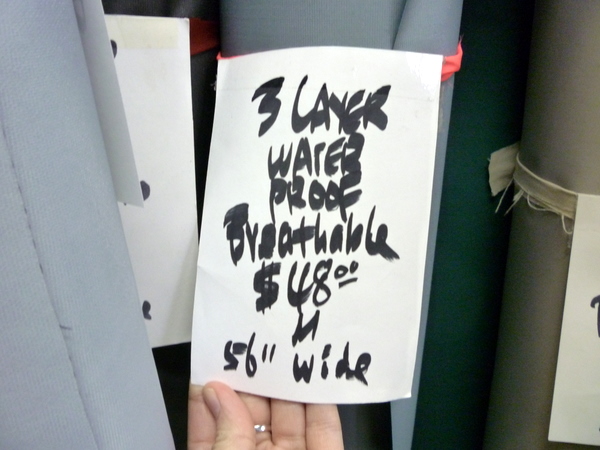 3 LAYER
WATER
PROOF
Breathable
$48⁰⁰
M
56" wide